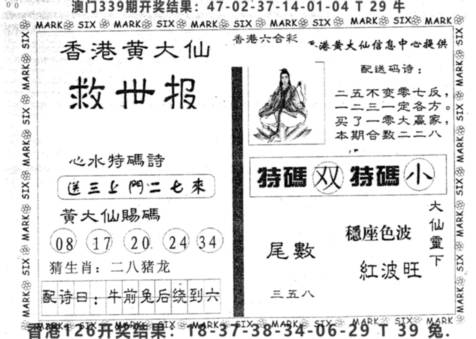 澳门339期开奖结果：47-02-37-14-01-04 T 29 牛
MARK SIX MARK SIX MARK SIX MARK SIX MARK SIX MARK SIX
香港黄大仙
救世报
心水特碼詩
送三上門二七來
黄大仙赐碼
08 17 20 24 34
猜生肖：二八猪龙
配诗曰：牛前兔后绕到六
香港六合彩
香港黄大仙信息中心提供
配送码诗：
二五不变零七反，
一二三一定各方。
买了一零大赢家，
本期合数二二八
特碼 双 特碼 小
尾數
三五八
穩座色波
紅波旺
大仙靈下
香港126开奖结果：18-37-38-34-06-29 T 39 兔.